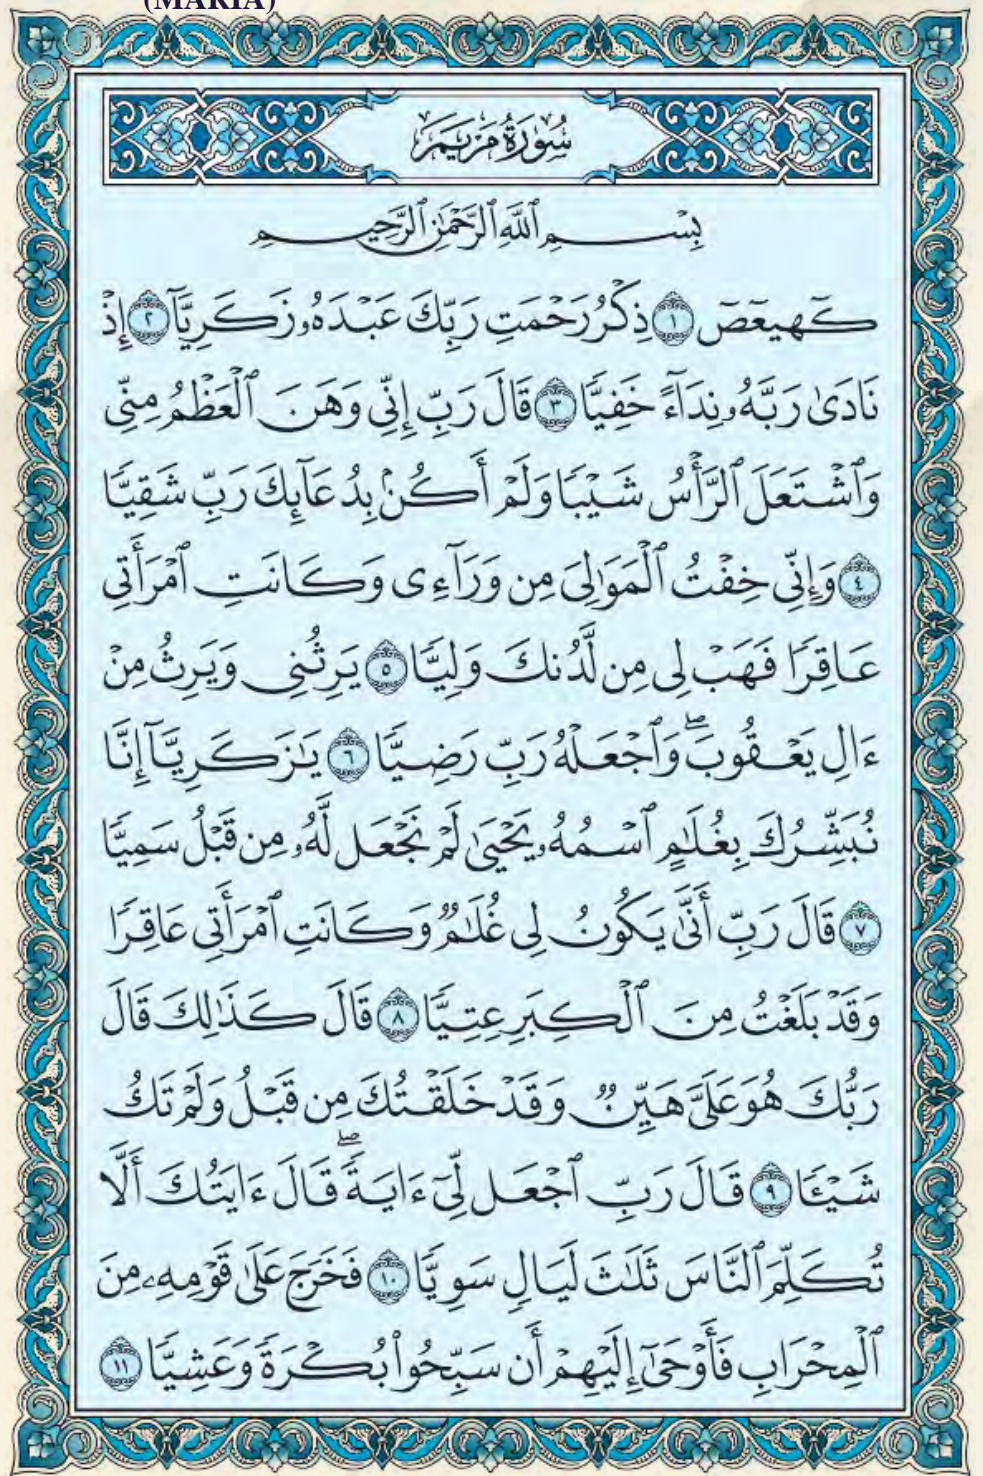 (MARIA)
سُورَةُ مَرْيَمَ
بِسْمِ ٱللَّهِ ٱلرَّحْمَٰنِ ٱلرَّحِيمِ
كٓهيعٓصٓ ١ ذِكْرُ رَحْمَتِ رَبِّكَ عَبْدَهُۥ زَكَرِيَّآ ٢ إِذْ
نَادَىٰ رَبَّهُۥ نِدَآءً خَفِيًّا ٣ قَالَ رَبِّ إِنِّي وَهَنَ ٱلْعَظْمُ مِنِّي
وَٱشْتَعَلَ ٱلرَّأْسُ شَيْبًا وَلَمْ أَكُنۢ بِدُعَآئِكَ رَبِّ شَقِيًّا
٤ وَإِنِّي خِفْتُ ٱلْمَوَٰلِيَ مِن وَرَآءِى وَكَانَتِ ٱمْرَأَتِي
عَاقِرًا فَهَبْ لِي مِن لَّدُنكَ وَلِيًّا ٥ يَرِثُنِي وَيَرِثُ مِنْ
ءَالِ يَعْقُوبَۖ وَٱجْعَلْهُ رَبِّ رَضِيًّا ٦ يَٰزَكَرِيَّآ إِنَّا
نُبَشِّرُكَ بِغُلَٰمٍ ٱسْمُهُۥ يَحْيَىٰ لَمْ نَجْعَل لَّهُۥ مِن قَبْلُ سَمِيًّا
٧ قَالَ رَبِّ أَنَّىٰ يَكُونُ لِي غُلَٰمٌ وَكَانَتِ ٱمْرَأَتِي عَاقِرًا
وَقَدْ بَلَغْتُ مِنَ ٱلْكِبَرِ عِتِيًّا ٨ قَالَ كَذَٰلِكَ قَالَ
رَبُّكَ هُوَ عَلَيَّ هَيِّنٌ وَقَدْ خَلَقْتُكَ مِن قَبْلُ وَلَمْ تَكُ
شَيْـًٔا ٩ قَالَ رَبِّ ٱجْعَل لِّيٓ ءَايَةًۖ قَالَ ءَايَتُكَ أَلَّا
تُكَلِّمَ ٱلنَّاسَ ثَلَٰثَ لَيَالٍ سَوِيًّا ١٠ فَخَرَجَ عَلَىٰ قَوْمِهِۦ مِنَ
ٱلْمِحْرَابِ فَأَوْحَىٰٓ إِلَيْهِمْ أَن سَبِّحُواْ بُكْرَةً وَعَشِيًّا ١١